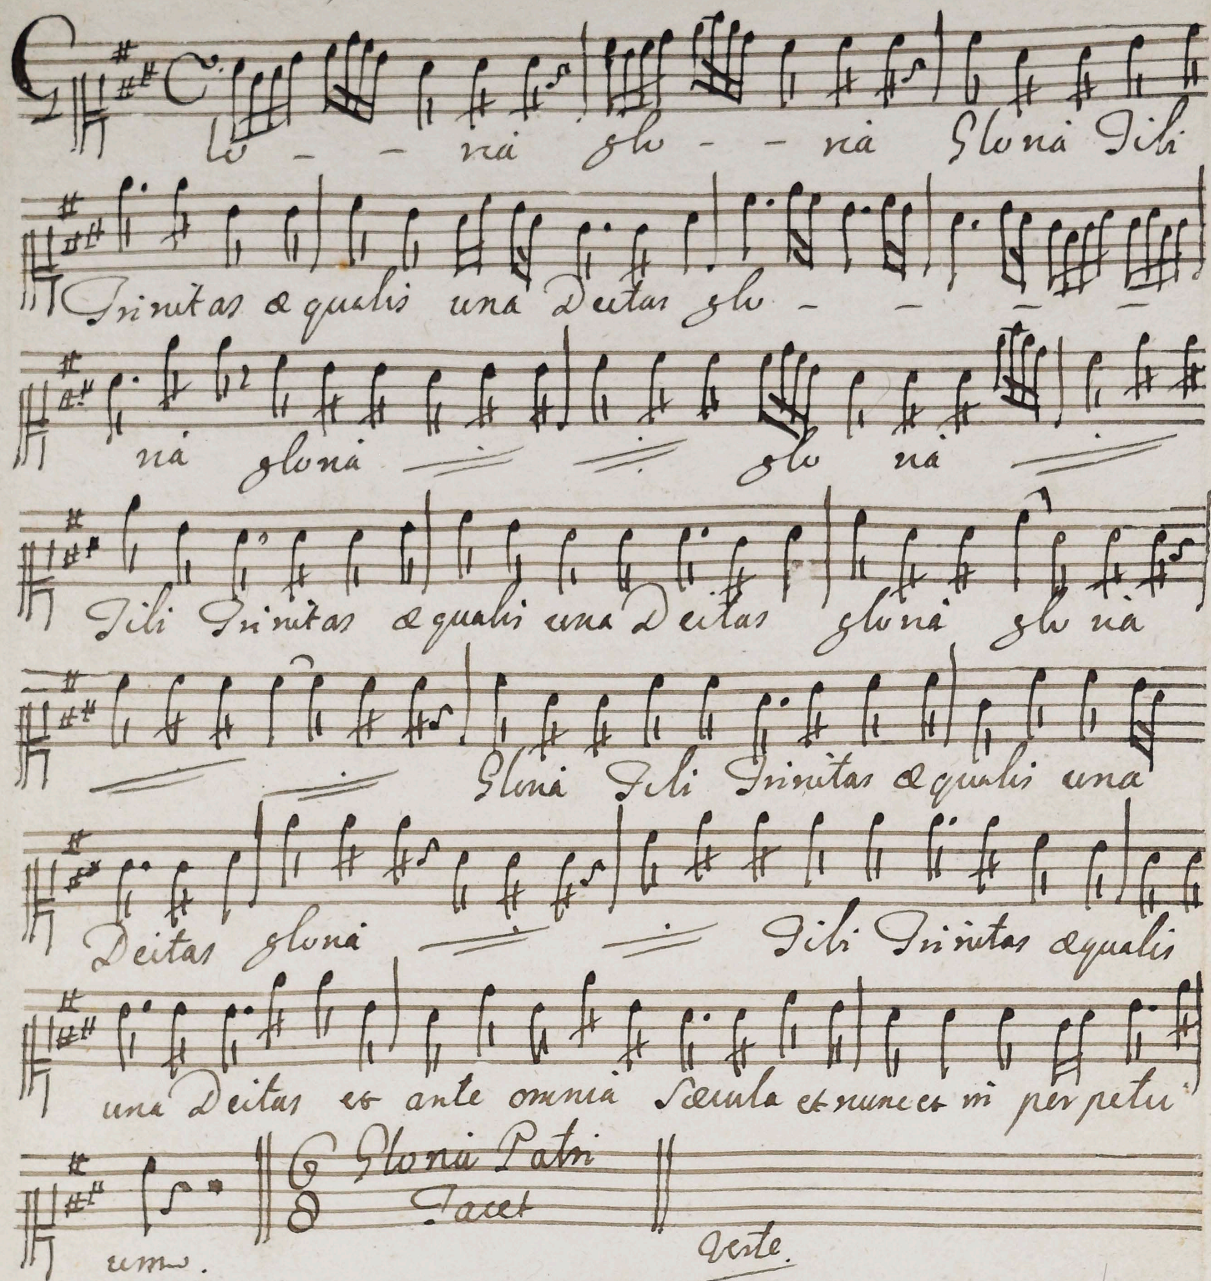 Glo - - ria glo - - ria Gloria Tibi
Trinitas æqualis una Deitas glo - - - -
ria gloria glo ria
Tibi Trinitas æqualis una Deitas gloria glo ria
Gloria Tibi Trinitas æqualis una
Deitas gloria Tibi Trinitas æqualis
una Deitas et ante omnia Sæcula et nunc et in perpetu
um.
6 Gloria Patri
8 Tacet
Verte.